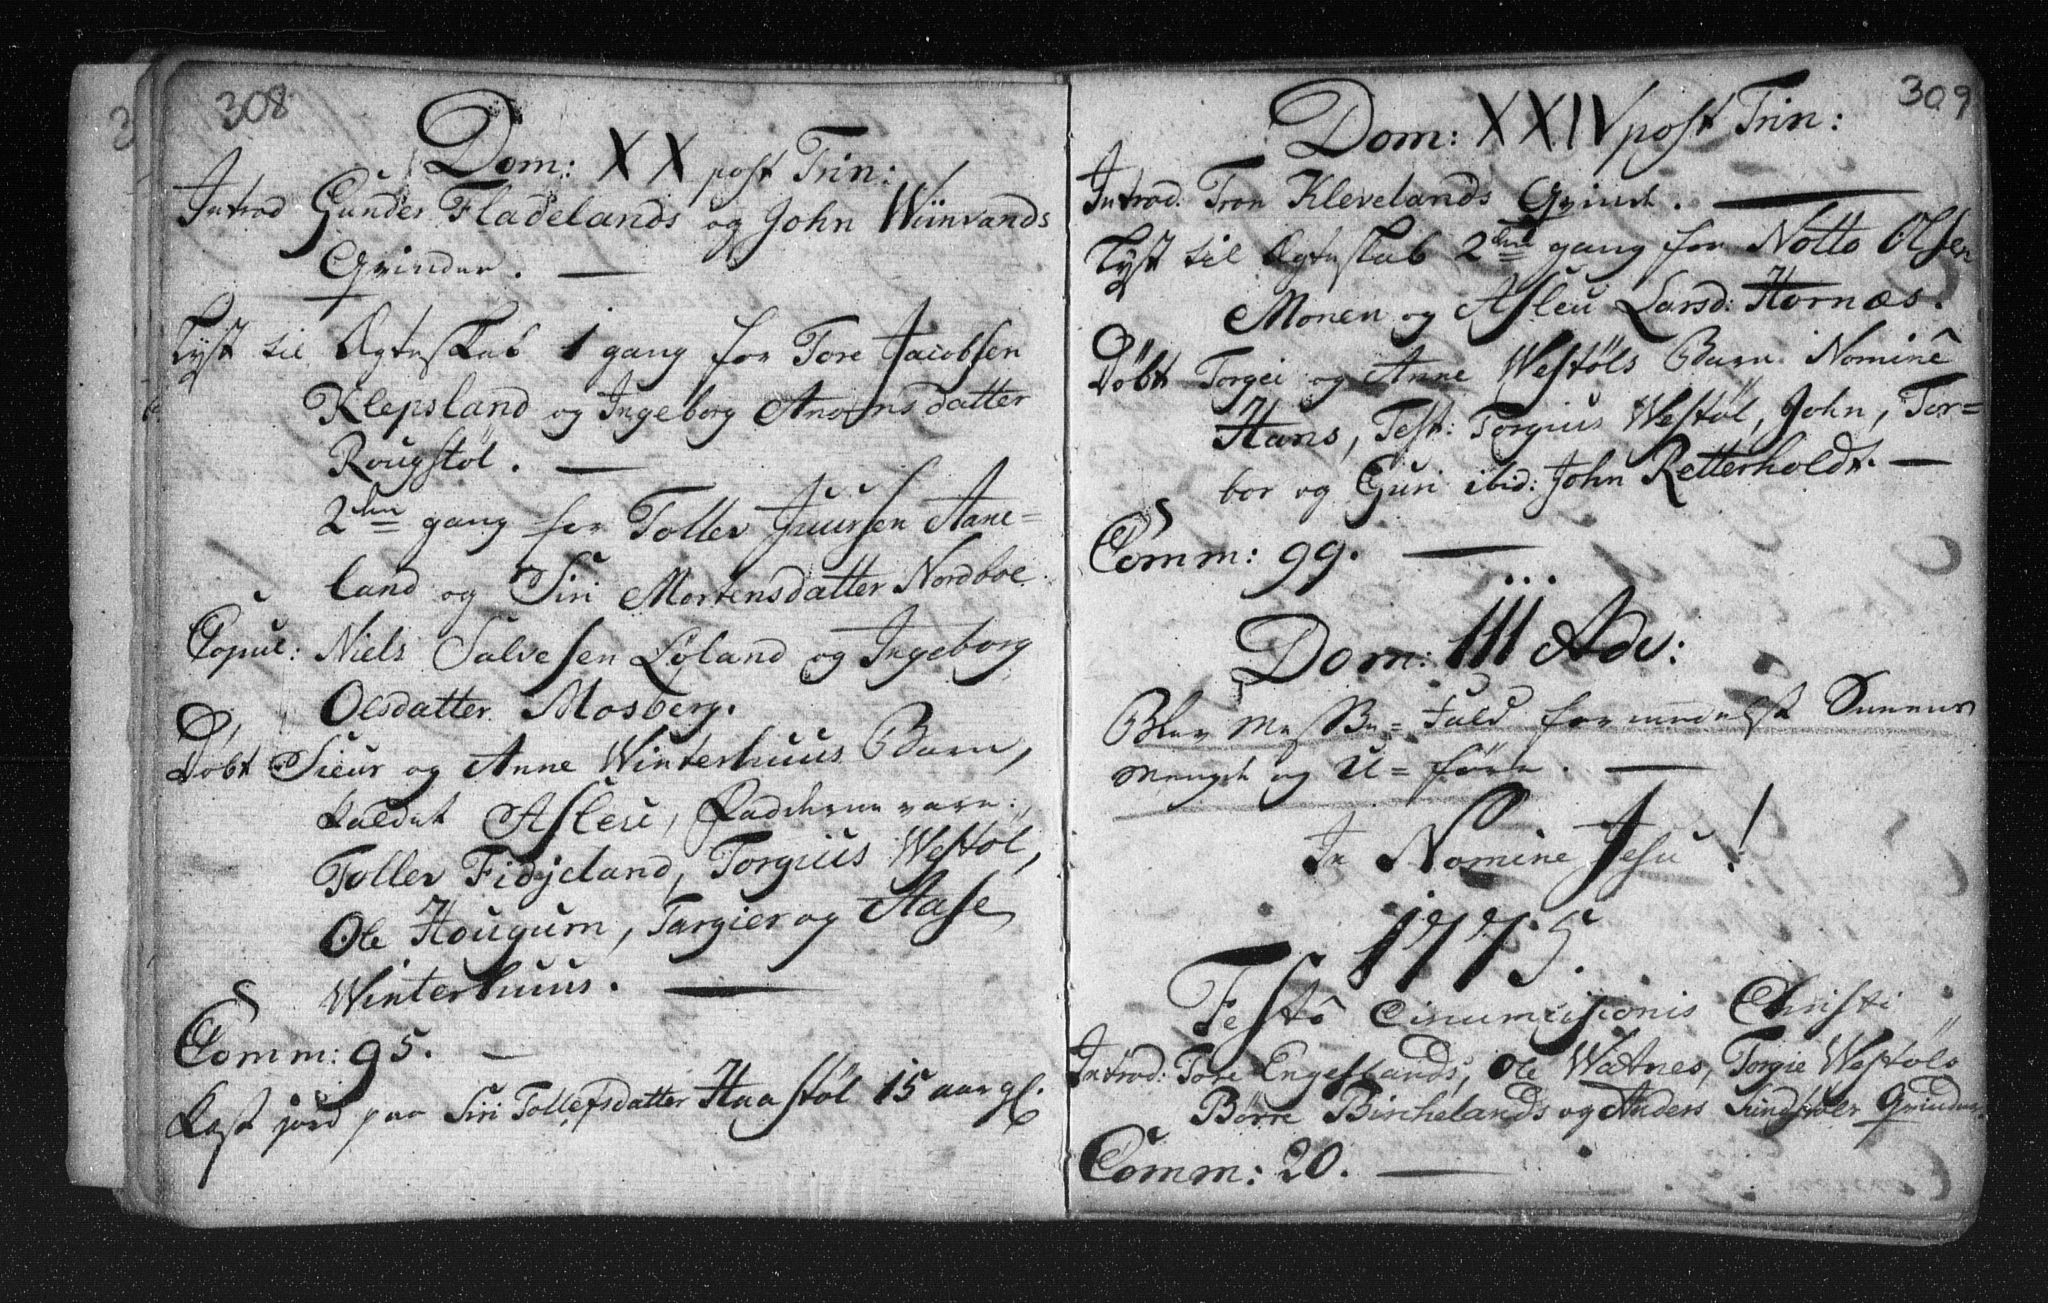 308
Dom: XX post Trin:
Introd Gunder Fladelands og John Wiinvands
Qvinder.
Lyst til Ægteskab 1 gang for Tore Jacobsen
Klepsland og Ingeborg Anornsdatter
Rougstøl.
2den gang for Tollev Juursen Aane=
land og Siri Mortensdatter Nordboe
Copul: Niels Salvesen Løland og Ingeborg
Olsdatter Mosberg.
Døbt Sieur og Anne Winterhuus Barn,
kaldet Asleu, Fadderne vare:
Tollev Fidjeland, Torgius Westøl,
Ole Hougum, Targier og Aase
Winterhuus.
Comm: 95.
Kast jord paa Siri Tollefsdatter Haastøl 15 aar gl.
309
Dom: XXIV post Trin:
Introd. Tron Klevelands Qvinde.
Lyst til Ægteskab 2den gang for Notto Olsen
Monen og Asleu Larsd: Hornæs.
Døbt Torgei og Anne Westøls Barn Nominê
Hans, Test: Torgius Westøl, John, Tor=
bor og Guri ibid: John Retterholdt.
Comm: 99.
Dom: III Adv:
Blev Messe=Fald formedelst Sneens
Mengde og U=føre.
In Nomine Jesu!
1775.
Festô Circumcisionis Christi
Introd: Tore Engeslands, Ole Watnes, Torgie Westøls
Børre Birchelands og Anders Sundstøls Qvinder
Comm: 20.